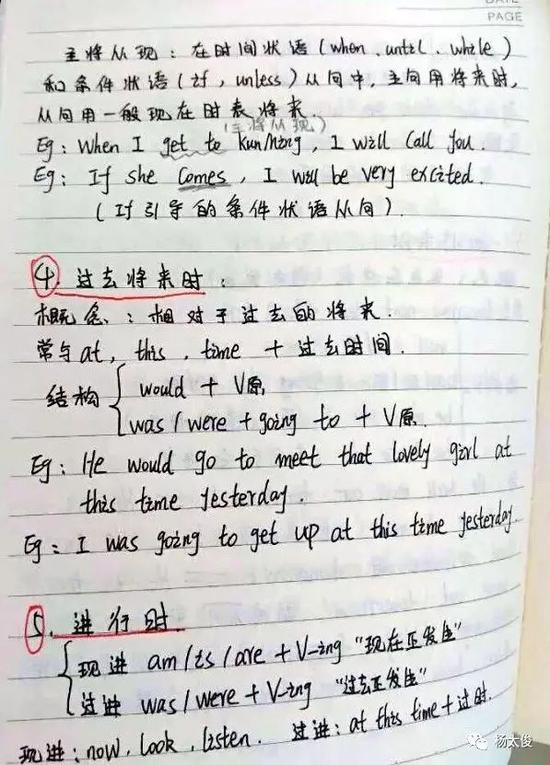 DATE
PAGE
主将从现：在时间状语(when、until、while)
和条件状语(if, unless)从句中，主句用将来时，
从句用一般现在时表将来.
(主将从现)
Eg: When I get to KunMing, I will Call You.
Eg: If she Comes, I will be very excited.
(If引导的条件状语从句).
④. 过去将来时：
概念：相对于过去的将来.
常与at, this, time + 过去时间.
结构 { would + V原.
was / were + going to + V原.
Eg: He would go to meet that lovely girl at
this time yesterday.
Eg: I was going to get up at this time yesterday.
⑤. 进行时.
{ 现进 am / is / are + V-ing "现在正发生"
过进 was / were + V-ing "过去正发生"
现进: now, look, listen. 过进: at this time + 过时.
杨太俊